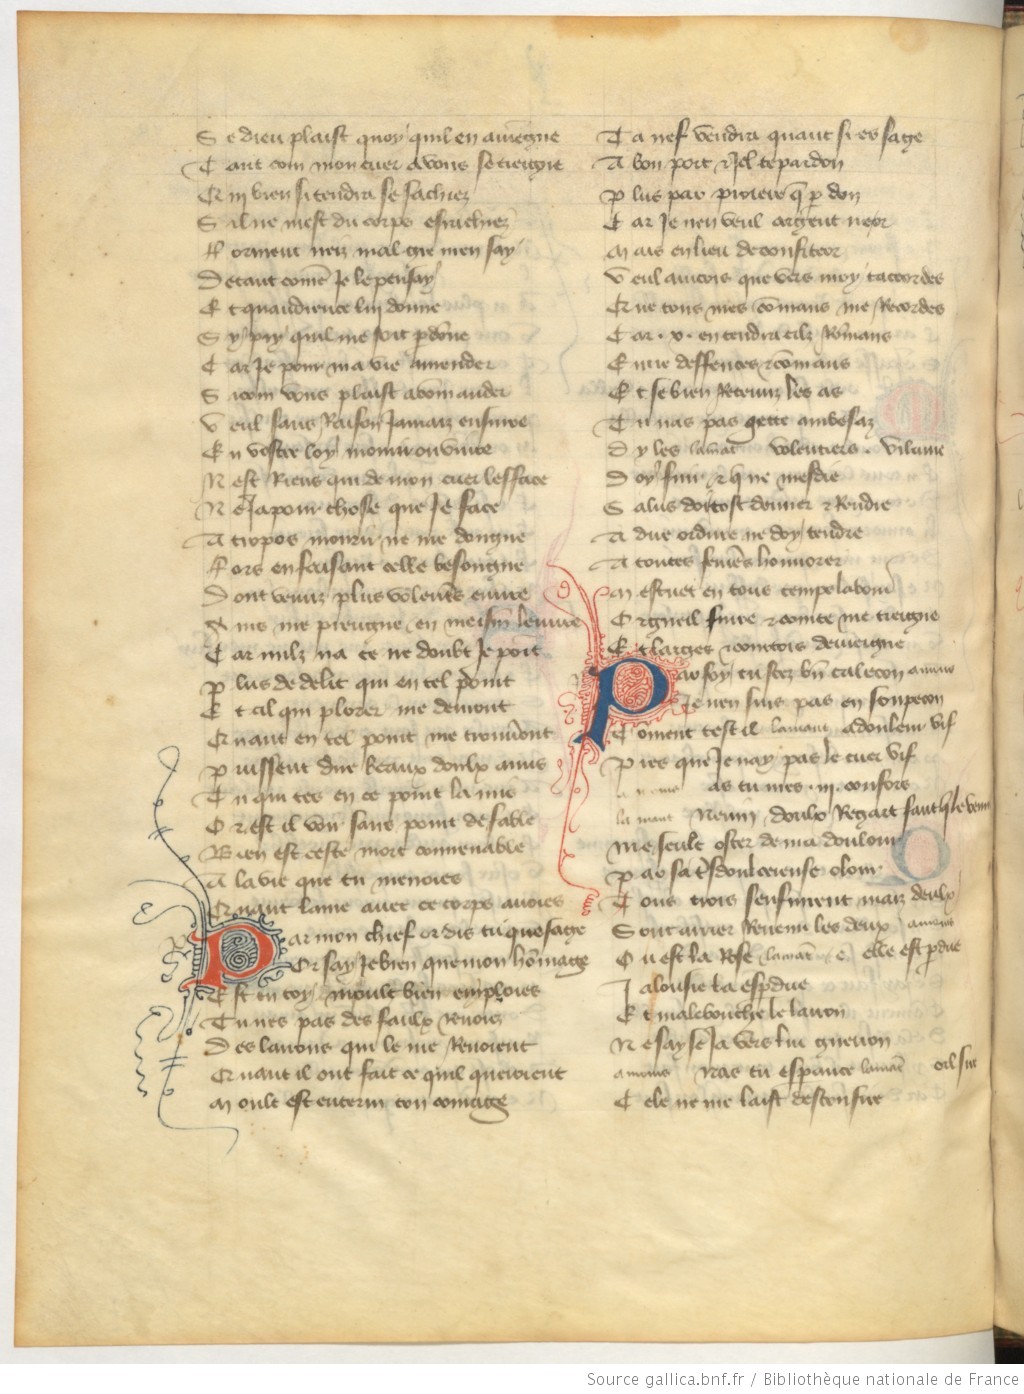 S e dieu plaist quoy quil en aviegne
C ant com mon cuer a vous se tieigne
Et m bien si tendra se sachiez
S il ne mest du corps esrachiez
F orment neiz mal gre men say
D e tant comē Je le pensay
E t quaudience lui donne
S y pry quil me soit pdōne
C ar Je pour ma vie amender
S icom vous plaist a comander
V eul sans Raison Jamaiz ensuire
E n vostre loy mourir ou vivre
N est Riens qui de mon cuer lesface
N e Ja pour chose que Je face
A tropos mourir ne me dongne
F ors en faisant celle besongne
D ont venuz plus volentrs enivre
A ins me preugne en meism leuvre
C ar nulz na ce ne doubt Je point
P lus de delit qui en tel point
E t cil qui plorer me deuront
Quant en tel point me trouūont
P uissent dire beaux doulx amis
T u qui tes en ce point la mis
O r est il voir sans point de fable
B ien est ceste mort convenable
A la vie que tu menoies
Quant lame avec ce corps avoies
P ar mon chief or dis tu que sage
Or say Je bien que mon hōmage
E st en toy moult bien emploies
T u nes pas des faulx Renoiez
D es larrons qui le me Renoient
Quant il ont fait ce quil queroient
M oult est enterin ton couraige
T a nef vendra quant si es sage
A bon port & Jel te pardon
P lus par priere q̄ p don
C ar Je nen veul argent ne or
M ais en lieu de confiteor
V eul aincois que vers moy taccordes
Que tous mes cōmans me Recordes
C ar .x. en tendra cilz Rōmans
E ntre deffences & cōmans
E t se bien Retenuz les as
T u nas pas gette ambesaz
D y les lamāt volentiers . vilanie
D oy fuir & q̄ ne mesdie
S alus doy tost donner & Rendre
A dire ordure ne doy tendre
A toutes femēs honnorer
M estuet en tous temps labour
Orgueil fuire & cointe me tieigne
E t larges & courtois devieigne
P ar foy tu scez bn̄ ta lecon amours
Je nen suis pas en soupecon
C oment test il lamant a douleur vif
P res que Je nay pas le cuer vif
as tu mes .iii. confors
la mant Nenin doulx Regart fault q̄ le venin
Me seult oster de ma doulour
P ar sa trs doulcereuse olour
T ous trois senfuirent maiz deulx
S ont arrier Revenu les deux amours
O u est la Rose lamāt e elle est pdue
J alousie la espdue
E t malebouche le larron
N e say se Ja vers lui guerron
amours Nas tu espance lamāt oil sire
C ele ne me laist desconfire